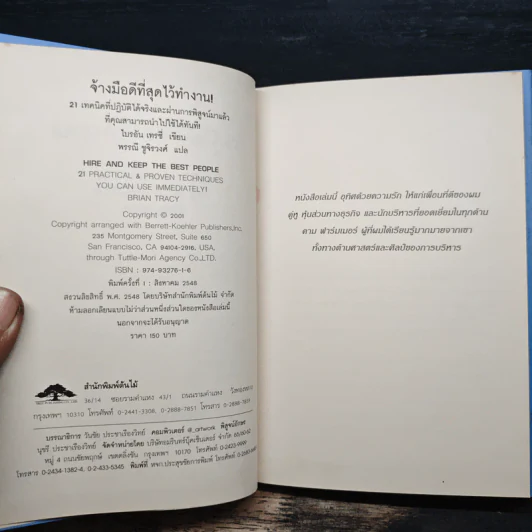 จ้างมือดีที่สุดไว้ทำงาน!
21 เทคนิคที่ปฏิบัติได้จริงและผ่านการพิสูจน์มาแล้ว
ที่คุณสามารถนำไปใช้ได้ทันที!
ไบรอัน เทรซี่ เขียน
พรรณี ชูจิรวงศ์ แปล
HIRE AND KEEP THE BEST PEOPLE
21 PRACTICAL & PROVEN TECHNIQUES
YOU CAN USE IMMEDIATELY!
BRIAN TRACY
Copyright © 2001
Copyright arranged with Berrett-Koehler Publishers,Inc.
235 Montgomery Street, Suite 650
San Francisco, CA 94104-2916, USA.
through Tuttle-Mori Agency Co.,LTD.
ISBN : 974-93276-1-6
พิมพ์ครั้งที่ 1 : สิงหาคม 2548
สงวนลิขสิทธิ์ พ.ศ. 2548 โดยบริษัทสำนักพิมพ์ต้นไม้ จำกัด
ห้ามลอกเลียนแบบไม่ว่าส่วนหนึ่งส่วนใดของหนังสือเล่มนี้
นอกจากจะได้รับอนุญาต
ราคา 150 บาท
สำนักพิมพ์ต้นไม้
36/14 ซอยรามคำแหง 43/1 ถนนรามคำแหง
กรุงเทพฯ 10310 โทรศัพท์ 0-2441-3308, 0-2888-7851 โทรสาร
บรรณาธิการ วันชัย ประชาเรืองวิทย์ คอมพิวเตอร์ @_artwork พิสูจน์อักษร
นุชรี ประชาเรืองวิทย์ จัดจำหน่ายโดย บริษัทอมรินทร์บุ๊คเซ็นเตอร์ จำกัด 65/60-62
หมู่ 4 ถนนชัยพฤกษ์ เขตตลิ่งชัน กรุงเทพฯ 10170 โทรศัพท์ 0-2423-9999
โทรสาร 0-2434-1382-4, 0-2-433-5345 พิมพ์ที่ หจก.ประสุขชัยการพิมพ์ โทรศัพท์
หนังสือเล่มนี้ อุทิศด้วยความรัก ให้แก่เพื่อนที่ดีของผม
คู่หู หุ้นส่วนทางธุรกิจ และนักบริหารที่ยอดเยี่ยมในทุกด้าน
ดาม ฟาร์มเมอร์ ผู้ที่ผมได้เรียนรู้มากมายจากเขา
ทั้งทางด้านศาสตร์และศิลป์ของการบริหาร